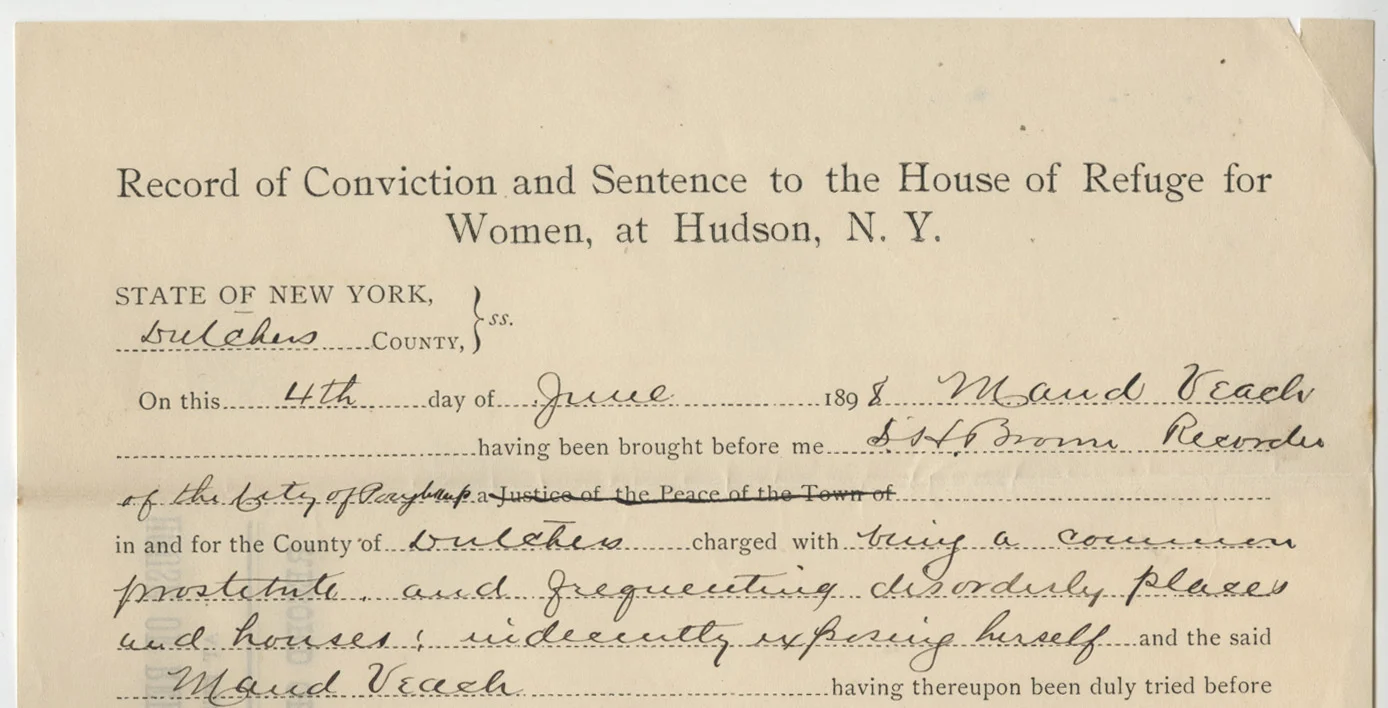 Record of Conviction and Sentence to the House of Refuge for
Women, at Hudson, N. Y.
STATE OF NEW YORK,
Dutchess County, } ss.
On this 4th day of June 1898 Maud Veach
having been brought before me S. H. Brown Recorder
of the City of a Justice of the Peace of the Town of
in and for the County of Dutchess charged with being a common
prostitute. and frequenting disorderly places
and houses; indecently exposing herself and the said
Maud Veach having thereupon been duly tried before